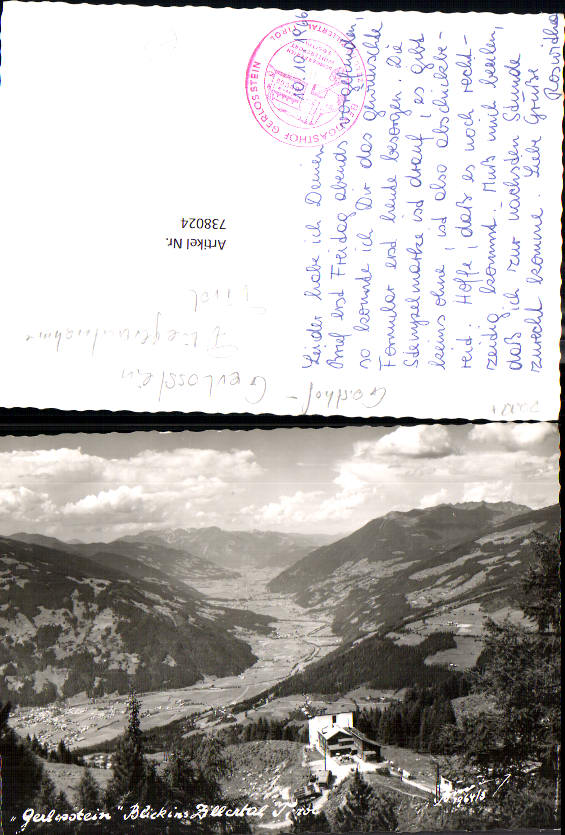 10.10.1966
Leider habe ich Deinen
Brief erst Freitag abends vorgefunden,
so konnte ich Dir das gewünschte
Formular erst heute besorgen. Die
Stempelmarke ist drauf, es gibt
keins ohne, ist also abschickbe-
reit. Hoffe, daß es noch recht-
zeitig kommt. Muß mich beeilen,
daß ich zur nächsten Stunde
zurecht komme. Liebe Grüße
Roswitha
BERGGASTHOF GERLOSSTEIN
ZILLERTAL TIROL
Artikel Nr.
738024
Gasthof - Gerlosstein
Fliegeraufnahme
Tirol
"Gerlosstein" Blick ins Zillertal Tirol